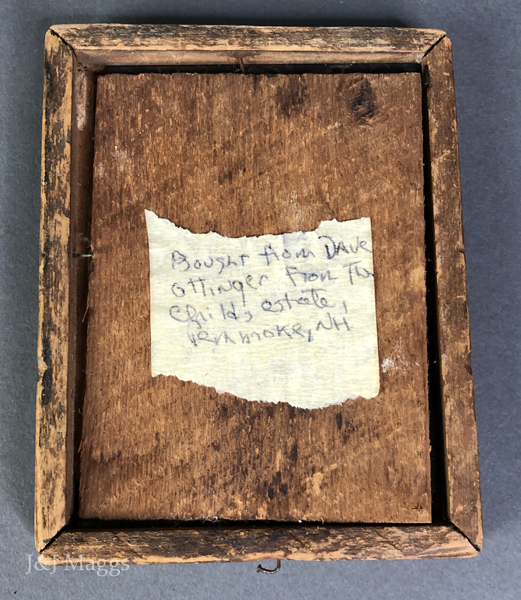 Bought from Dave
Ottinger from The
Childs estate,
NH
J&J Maggs